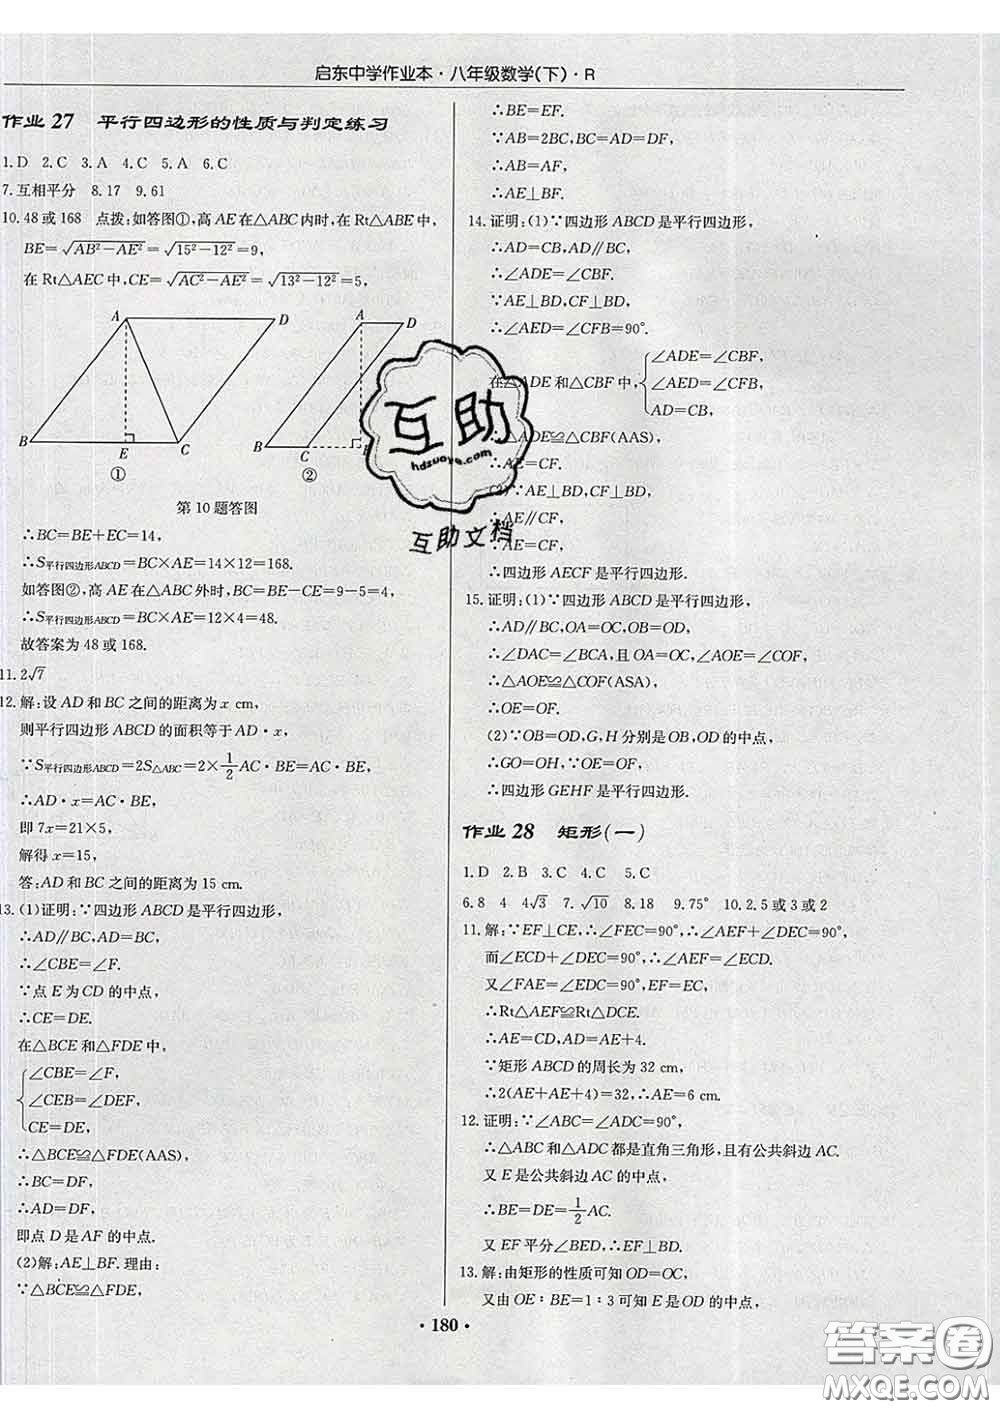 启东中学作业本·八年级数学(下)·R
作业 27 平行四边形的性质与判定练习
1.D 2.C 3.A 4.C 5.A 6.C
7.互相平分 8.17 9.61
10.48或168 点拨:如答图①,高AE在△ABC内时,在Rt△ABE中,
BE=√(AB²−AE²)=√(15²−12²)=9,
在Rt△AEC中,CE=√(AC²−AE²)=√(13²−12²)=5,
A D B E C ①
A D B C ②
第10题答图
∴BC=BE+EC=14,
∴S平行四边形ABCD=BC×AE=14×12=168.
如答图②,高AE在△ABC外时,BC=BE−CE=9−5=4,
∴S平行四边形ABCD=BC×AE=12×4=48.
故答案为48或168.
11.2√7
12.解:设AD和BC之间的距离为x cm,
则平行四边形ABCD的面积等于AD·x,
∵S平行四边形ABCD=2S△ABC=2×1/2AC·BE=AC·BE,
∴AD·x=AC·BE,
即7x=21×5,
解得x=15,
答:AD和BC之间的距离为15 cm.
13.(1)证明:∵四边形ABCD是平行四边形,
∴AD∥BC,AD=BC,
∴∠CBE=∠F.
∵点E为CD的中点,
∴CE=DE.
在△BCE和△FDE中,
∠CBE=∠F,
∠CEB=∠DEF,
CE=DE,
∴△BCE≌△FDE(AAS),
∴BC=DF,
∴AD=DF,
即点D是AF的中点.
(2)解:AE⊥BF.理由:
∵△BCE≌△FDE,
∴BE=EF.
∵AB=2BC,BC=AD=DF,
∴AB=AF,
∴AE⊥BF.
14.证明:(1)∵四边形ABCD是平行四边形,
∴AD=CB,AD∥BC,
∴∠ADE=∠CBF.
∵AE⊥BD,CF⊥BD,
∴∠AED=∠CFB=90°.
∠ADE=∠CBF,
在△ADE和△CBF中,∠AED=∠CFB,
AD=CB,
∴△ADE≌△CBF(AAS),
∴AE=CF.
(2)∵AE⊥BD,CF⊥BD,
∴AE∥CF,
∵AE=CF,
∴四边形AECF是平行四边形.
15.证明:(1)∵四边形ABCD是平行四边形,
∴AD∥BC,OA=OC,OB=OD,
∴∠DAC=∠BCA,且OA=OC,∠AOE=∠COF,
∴△AOE≌△COF(ASA),
∴OE=OF.
(2)∵OB=OD,G,H分别是OB,OD的中点,
∴GO=OH,∵OE=OF,
∴四边形GEHF是平行四边形.
作业 28 矩形(一)
1.D 2.B 3.C 4.C 5.C
6.8 4 4√3 7.√10 8.18 9.75° 10.2.5或3或2
11.解:∵EF⊥CE,∴∠FEC=90°,∴∠AEF+∠DEC=90°,
而∠ECD+∠DEC=90°,∴∠AEF=∠ECD.
又∠FAE=∠EDC=90°,EF=EC,
∴Rt△AEF≌Rt△DCE.
∴AE=CD,AD=AE+4.
∵矩形ABCD的周长为32 cm,
∴2(AE+AE+4)=32,AE=6 cm.
12.证明:∵∠ABC=∠ADC=90°,
∴△ABC和△ADC都是直角三角形,且有公共斜边AC.
又E是公共斜边AC的中点,
∴BE=DE=1/2AC.
又EF平分∠BED,∴EF⊥BD.
13.解:由矩形的性质可知OD=OC,
又由OE∶BE=1∶3可知E是OD的中点,
·180·
互助
hdzuoye.com
互助文档
答案圈
MXQE.COM